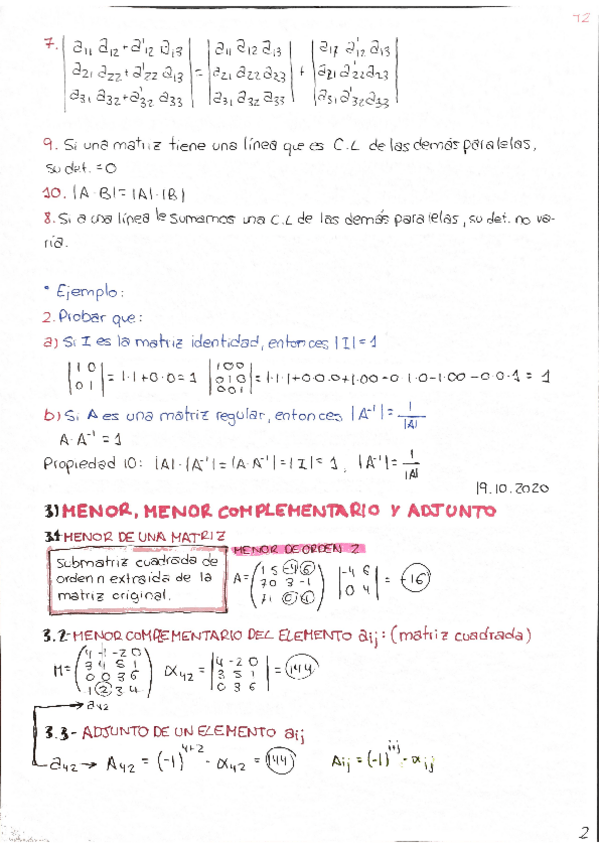 12
7. | a11 a12+a'12 a13 | | a11 a12 a13 | | a11 a'12 a13 |
| a21 a22+a'22 a13 | = | a21 a22 a23 | + | a21 a'22 a23 |
| a31 a32+a'32 a33 | | a31 a32 a33 | | a31 a'32 a33 |
9. Si una matriz tiene una línea que es C.L de las demás paralelas,
su det. = 0
10. |A·B| = |A|·|B|
8. Si a una línea le sumamos una C.L de las demás paralelas, su det. no va-
ría.
* Ejemplo:
2. Probar que:
a) Si I es la matriz identidad, entonces |I| = 1
| 1 0 | | 1 0 0 |
| 0 1 | = 1·1+0·0 = 1 | 0 1 0 | = 1·1·1+0·0·0+1·00-0·1·0-1·00-0·0·1 = 1
| 0 0 1 |
b) Si A es una matriz regular, entonces |A⁻¹| = 1/|A|
A·A⁻¹ = 1
Propiedad 10: |A|·|A⁻¹| = |A·A⁻¹| = |I| = 1, |A⁻¹| = 1/|A|
19.10.2020
3) MENOR, MENOR COMPLEMENTARIO Y ADJUNTO
3.1 MENOR DE UNA MATRIZ
MENOR DE ORDEN 2
Submatriz cuadrada de
orden n extraida de la
matriz original.
A = ( 1 5 -4 6 ) | -4 6 |
( 7 0 3 -1 ) | 0 4 | = -16
( 7 1 0 4 )
3.2- MENOR COMPLEMENTARIO DEL ELEMENTO aij: (matriz cuadrada)
( 4 -1 -2 0 ) | 4 -2 0 |
M = ( 3 4 5 1 ) α42 = | 3 5 1 | = 144
( 0 0 3 6 ) | 0 3 6 |
( 1 2 3 4 )
→ a42
3.3- ADJUNTO DE UN ELEMENTO aij
a42 → A42 = (-1)⁴⁺² · α42 = 144 Aij = (-1)ⁱ⁺ʲ · αij
2